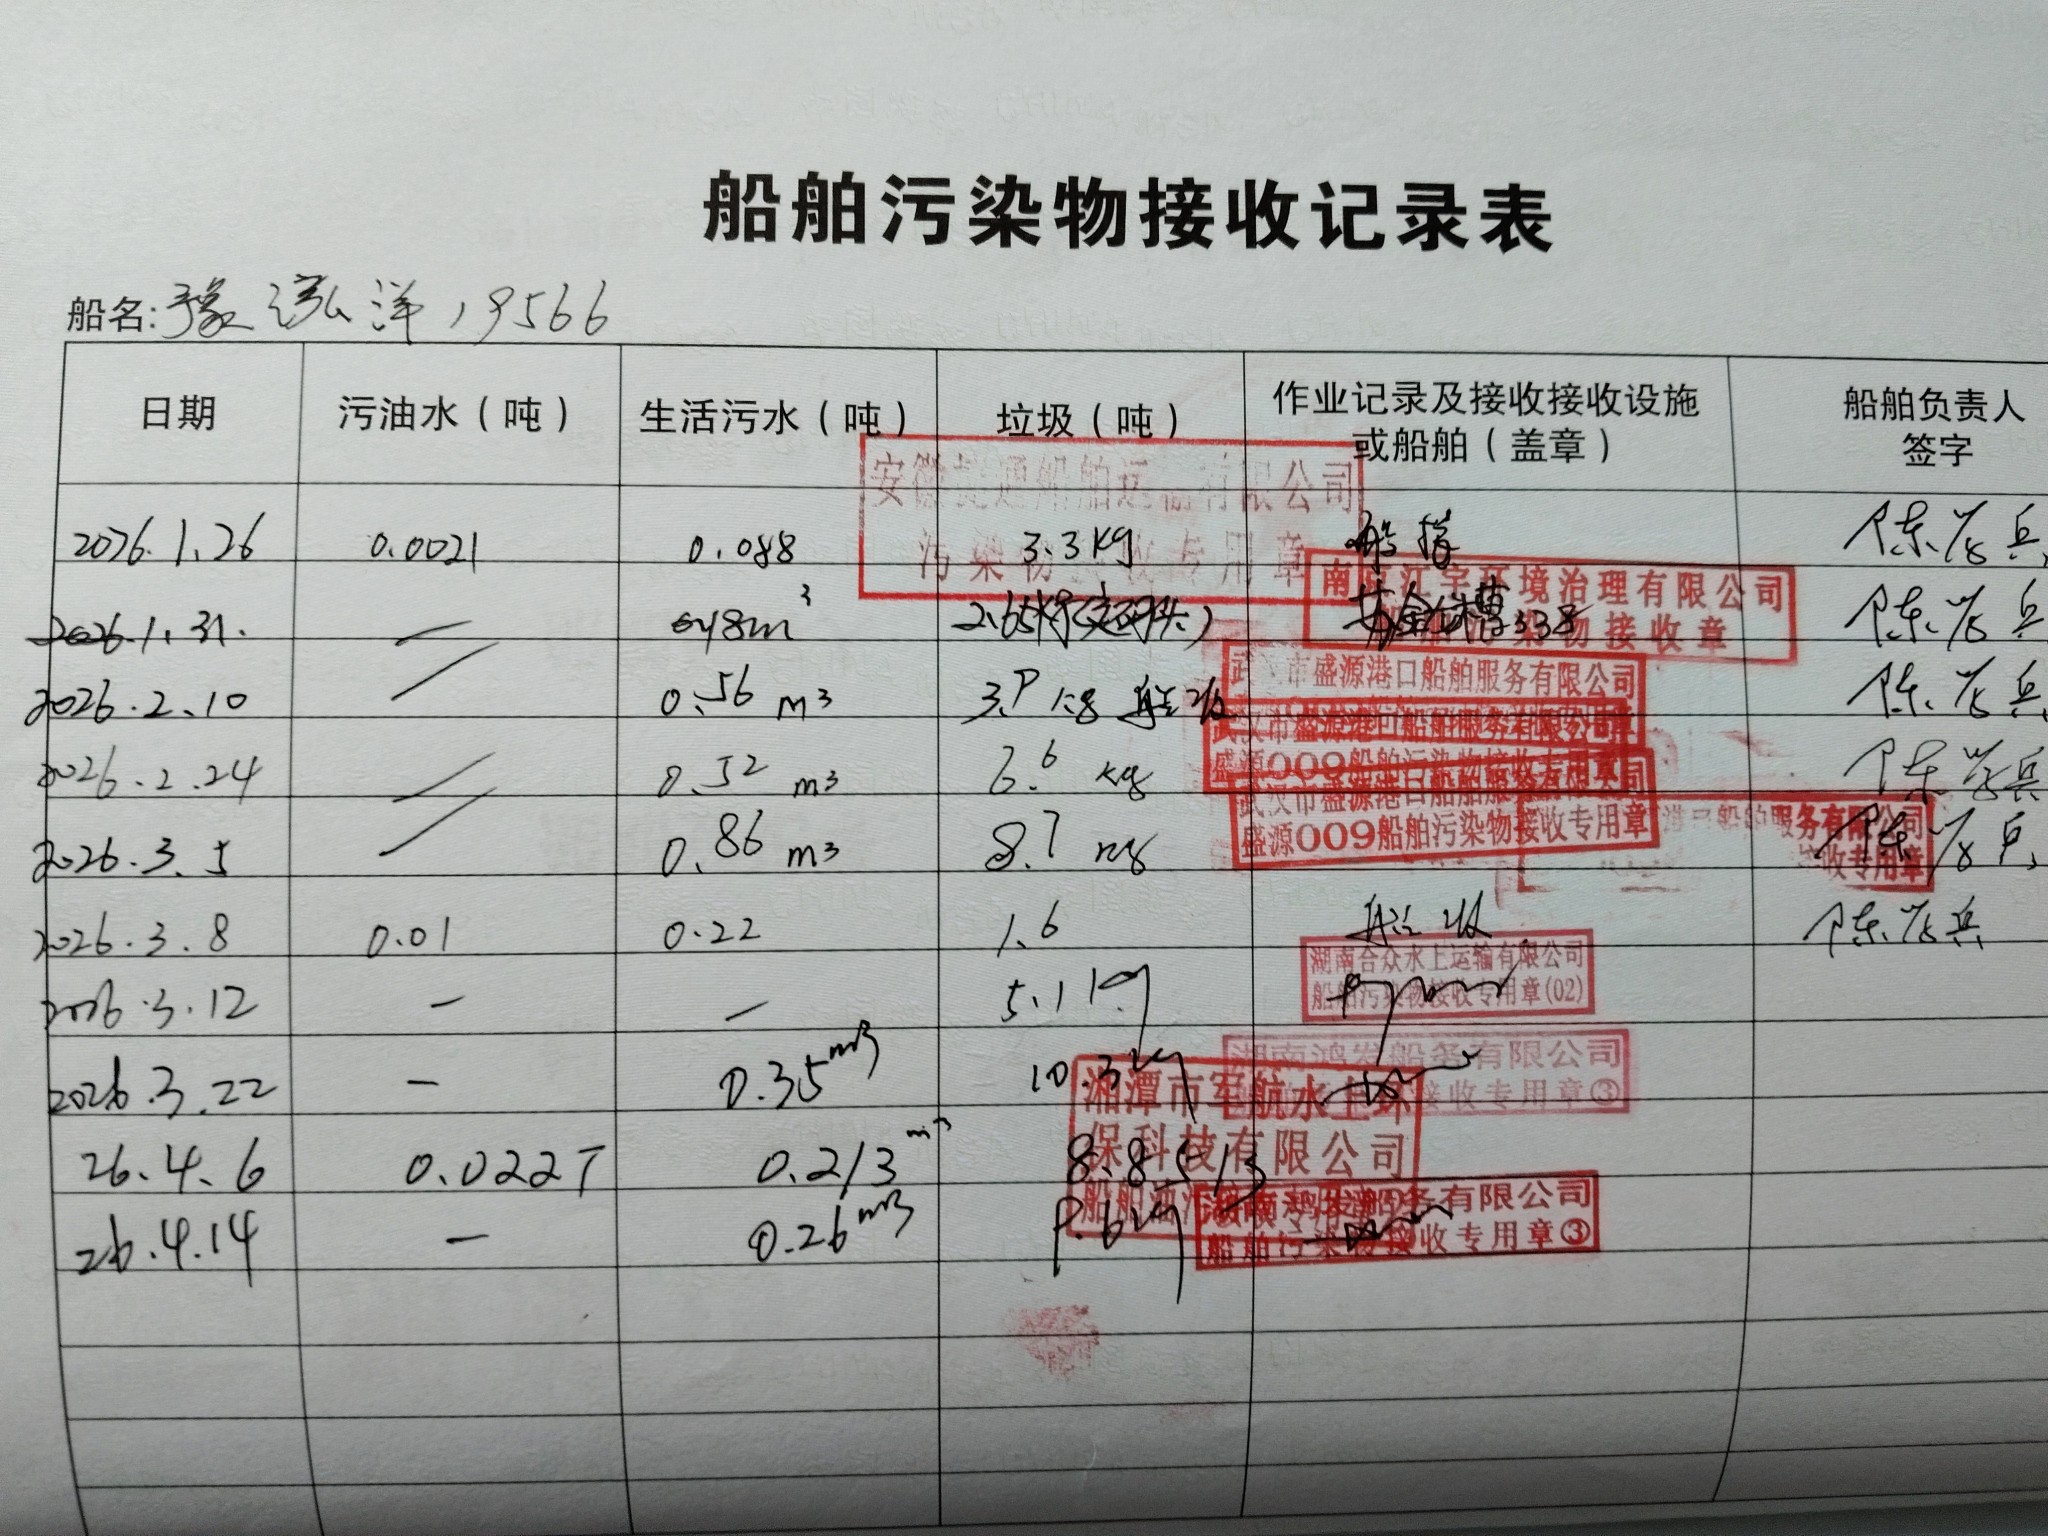 船舶污染物接收记录表
船名:豫泓洋19566
日期 污油水（吨） 生活污水（吨） 垃圾（吨） 作业记录及接收接收设施或船舶（盖章） 船舶负责人签字
安徽 通船舶运 有限公司
污染物接收专用章
2026.1.26 0.0021 0.088 3.3kg 陈 兵
南 江宇环境治理有限公司
染物接收章
2026.1.31. — m³ 338 陈 兵
武汉市盛源港口船舶服务有限公司
2026.2.10 0.56 m³ 船收 陈 兵
武汉市盛源港口船舶服务有限公司
盛源009船舶污染物接收专用章
2026.2.24 0.52 m³ 6 kg 陈 兵
武汉市盛源港口船舶服务有限公司
盛源009船舶污染物接收专用章
港口船舶服务有限公司
接收专用章
2026.3.5 0.86 m³ 8.7 kg 陈 兵
2026.3.8 0.01 0.22 1.6 船收 陈 兵
湖南合众水上运输有限公司
船舶污染物接收专用章(02)
2026.3.12 — — 5.1 kg
湖南鸿发船务有限公司
接收专用章③
2026.3.22 — 0.35m³ 10.3kg
湘潭市军航水上环
保科技有限公司
26.4.6 0.022T 0.213m³ 8.85
湖南鸿发船务有限公司
船舶污染物接收专用章③
26.4.14 — 0.26m³ 9.6kg